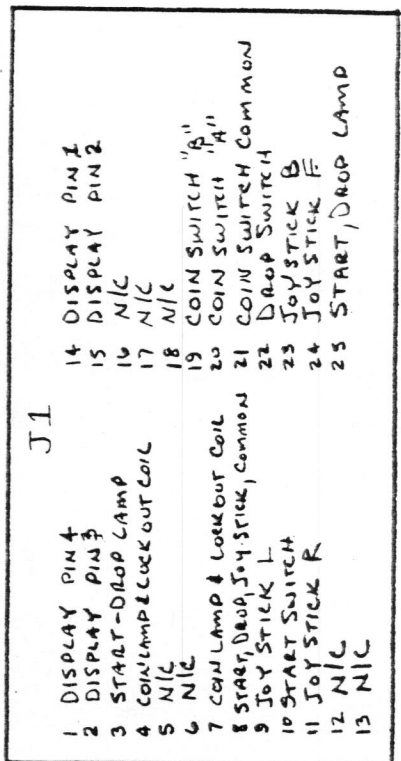 J1
1 DISPLAY PIN4
2 DISPLAY PIN3
3 START-DROP LAMP
4 COIN LAMP & LOCK OUT COIL
5 N/C
6 N/C
7 COIN LAMP & LOCKOUT COIL
8 START, DROP, JOY-STICK, COMMON
9 JOY STICK L
10 START SWITCH
11 JOY STICK R
12 N/C
13 N/C
14 DISPLAY PIN1
15 DISPLAY PIN2
16 N/C
17 N/C
18 N/C
19 COIN SWITCH "B"
20 COIN SWITCH "A"
21 COIN SWITCH COMMON
22 DROP SWITCH
23 JOYSTICK B
24 JOYSTICK F
25 START, DROP LAMP